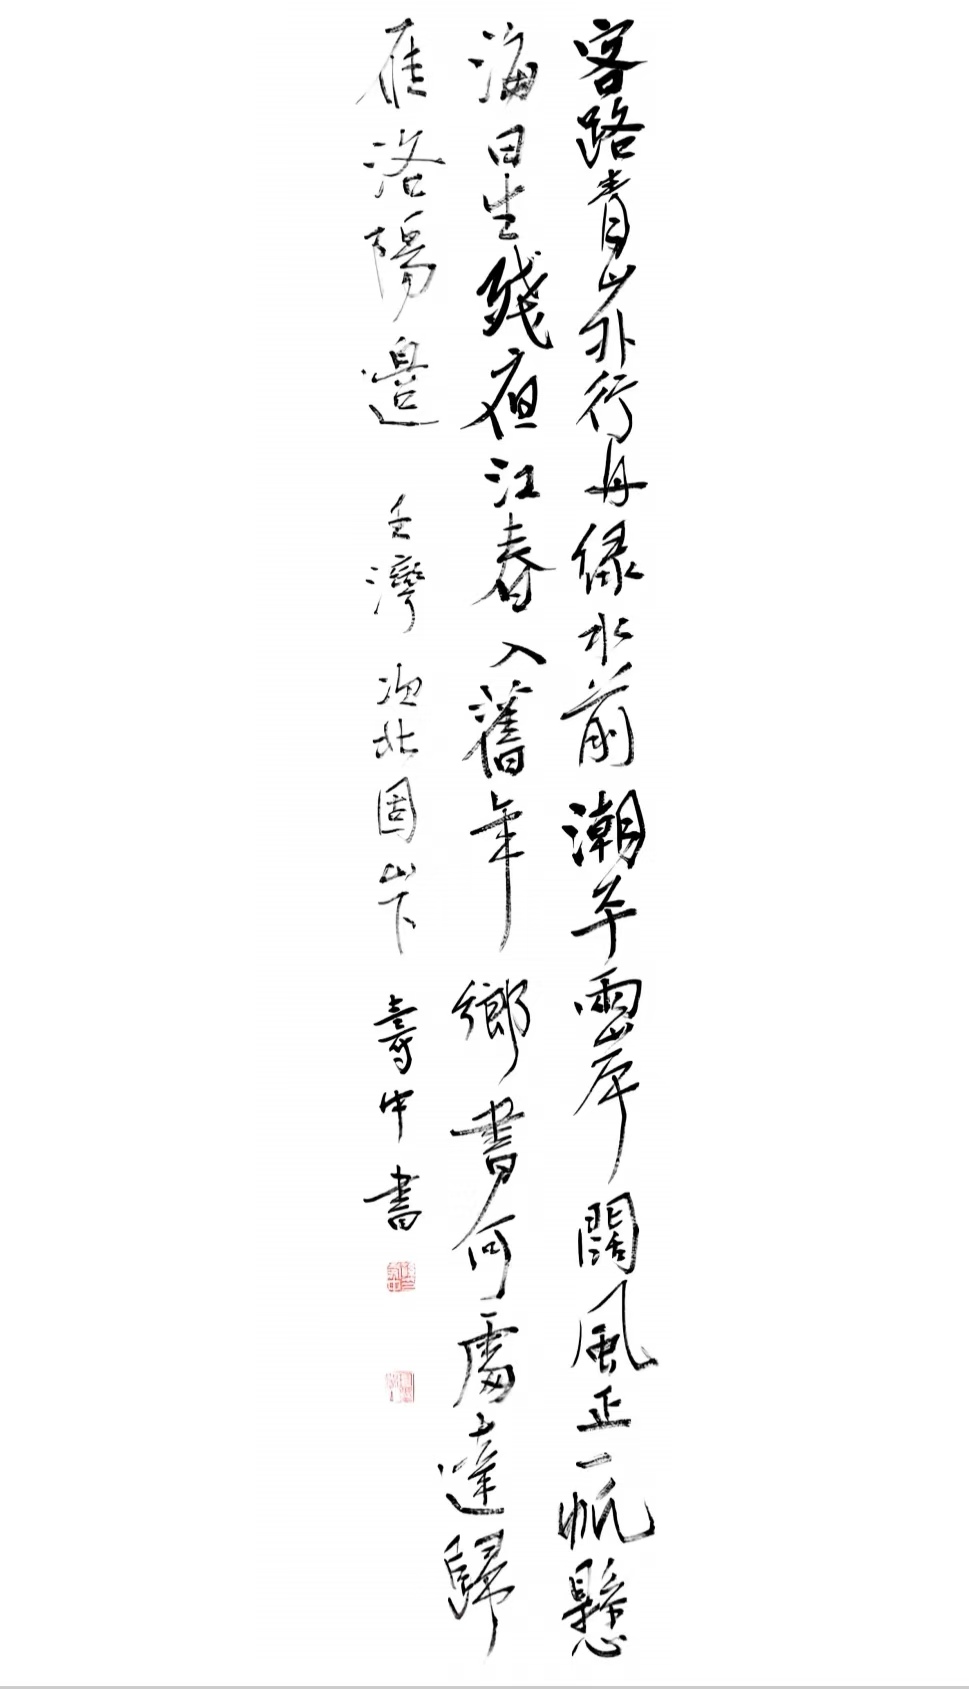 客路青山外行舟緑水前潮平兩岸闊風正一帆懸
海日生殘夜江春入舊年鄉書何處達歸
雁洛陽邊 王灣 次北固山下 壽中書